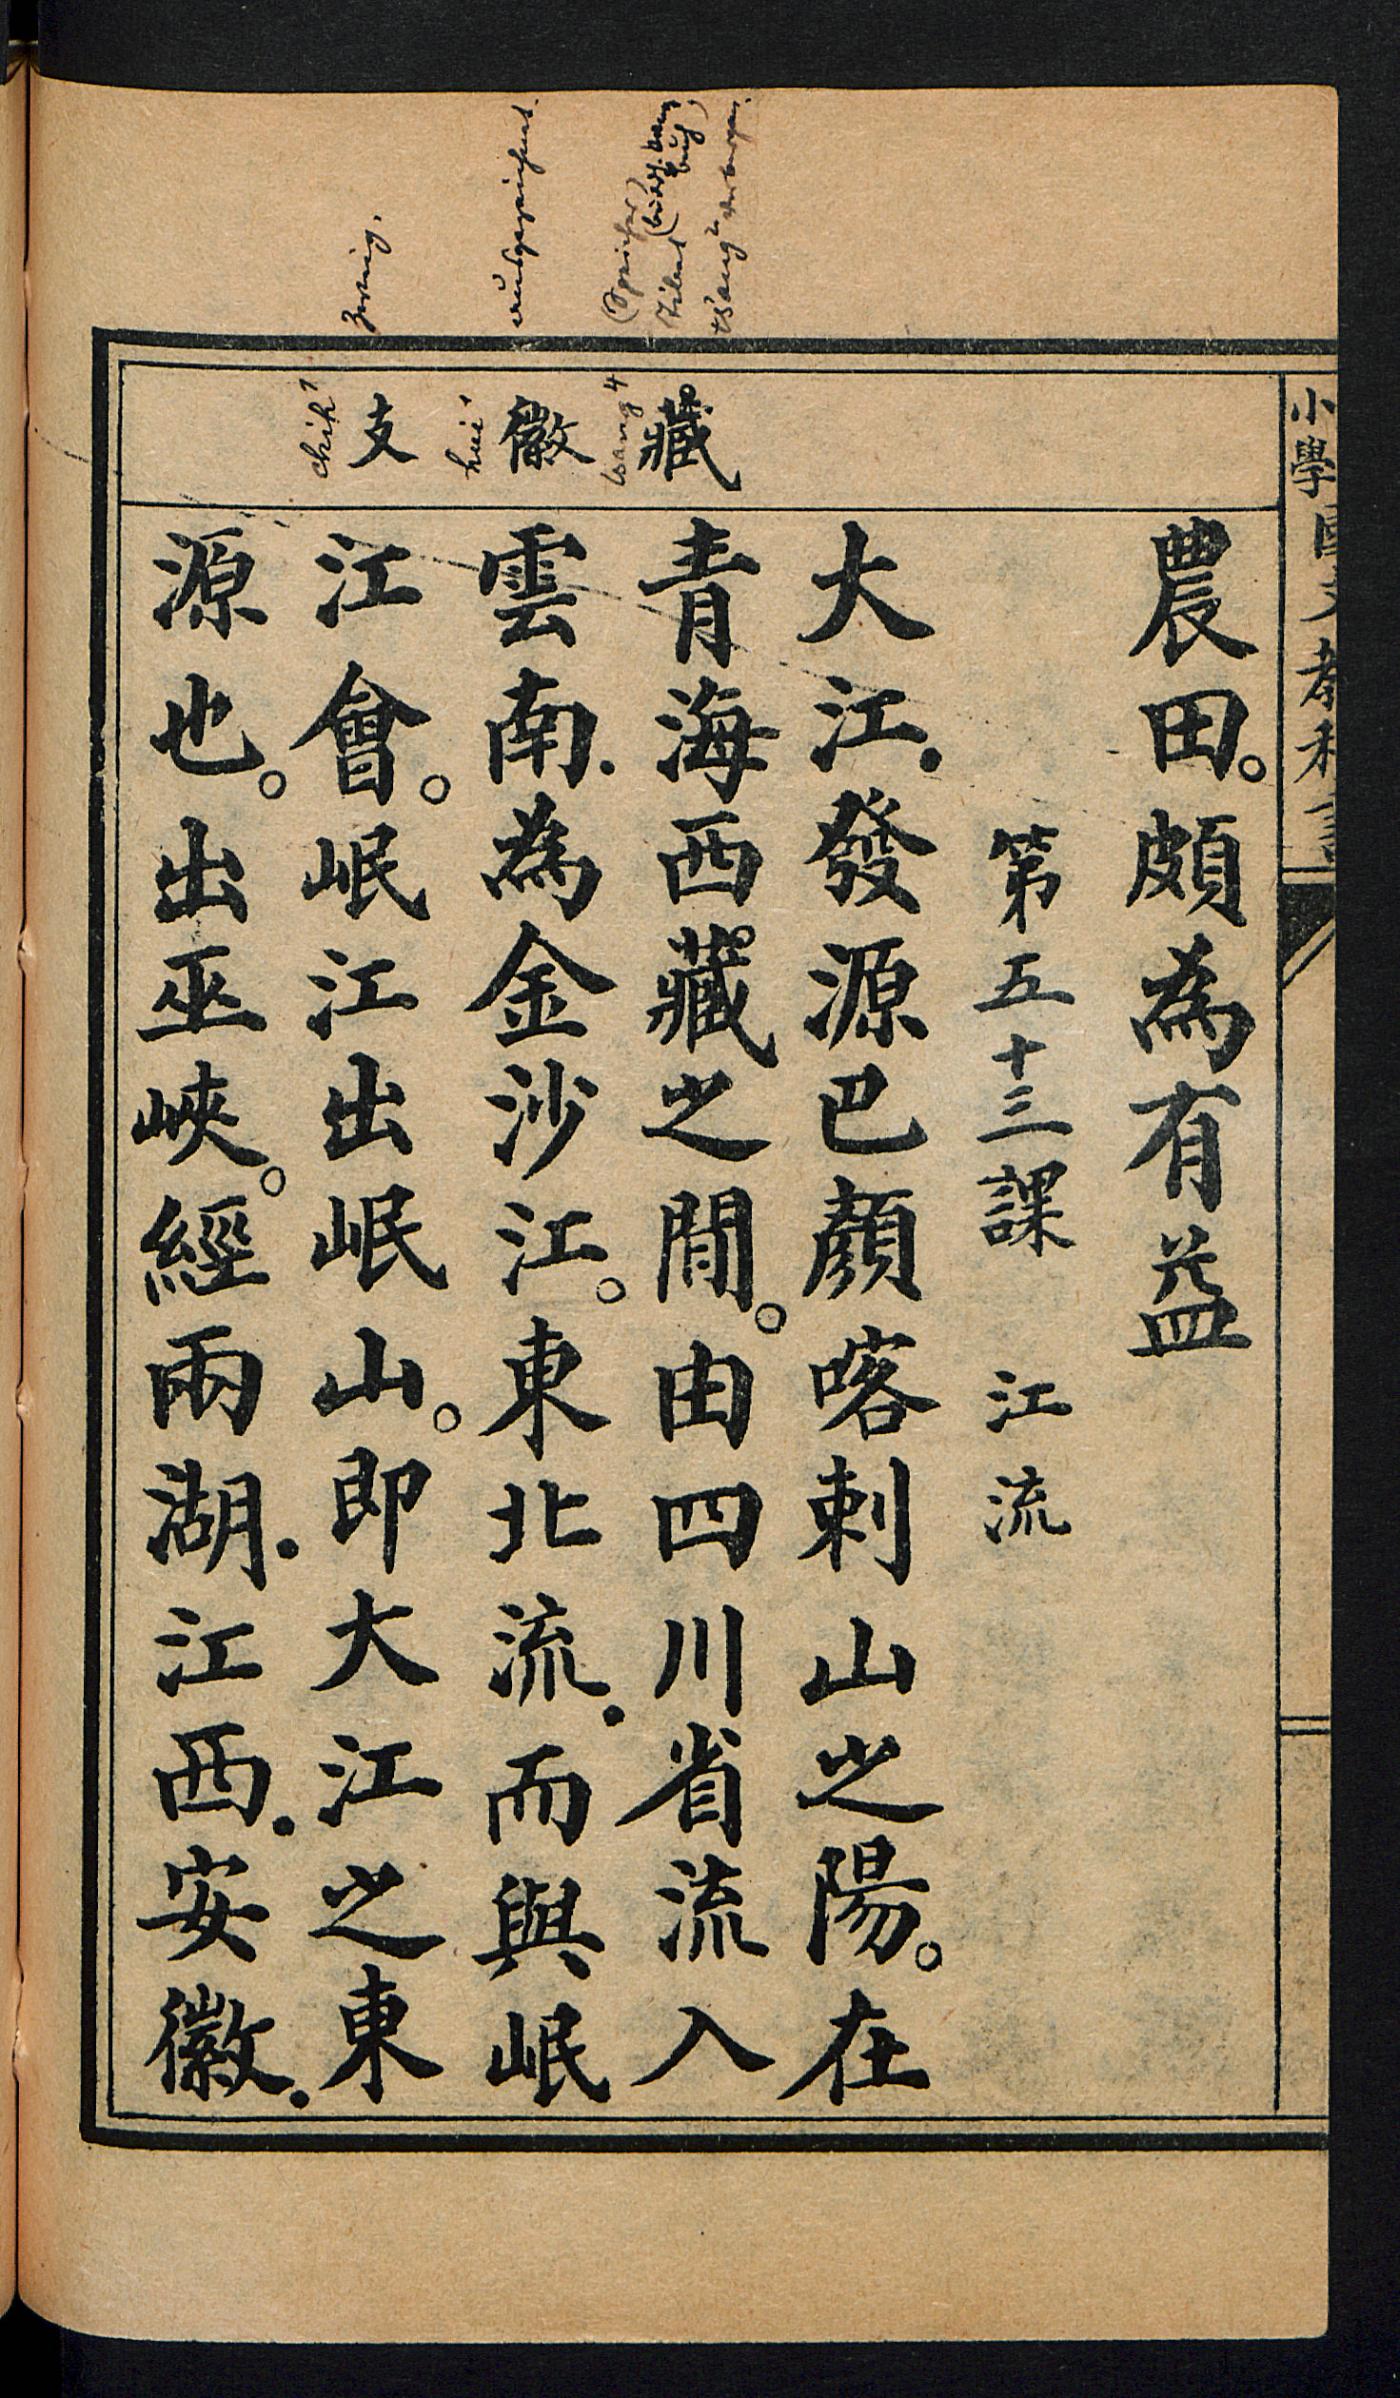 小學國文教科書
農田。頗為有益
第五十三課 江流
大江.發源巴顏喀剌山之陽。在
青海西藏之間。由四川省流入
雲南.為金沙江。東北流.而與岷
江會。岷江出岷山。即大江之東
源也。出巫峽。經兩湖.江西.安徽.
藏
徽
支
tsang4
hui1
chih1
Tibet
zweig.
ausgezeichnet.